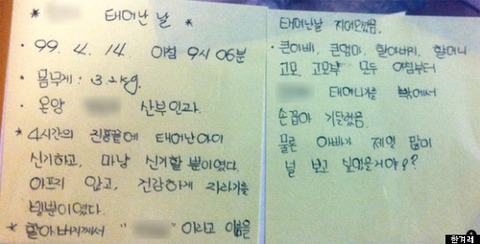 * 태어난 날 *
• 99. 4. 14. 아침 9시 06분
• 몸무게 : 3.2kg.
• 온양 산부인과.
* 4시간의 진통끝에 태어난아이
신기하고, 마냥 신기할 뿐이었다.
아프지 않고, 건강하게 자라기를
빌뿐이였다.
* 할아버지께서 " " 이라고 이름을
태어난날 지어오셨음.
• 큰아빠, 큰엄마, 할아버지, 할머니
고모, 고모부 모두 아침부터
태어나기를 밖에서
손꼽아 기다렸음.
물론 아빠가 제일 많이
널 보고 싶었을거야 ?
한겨레